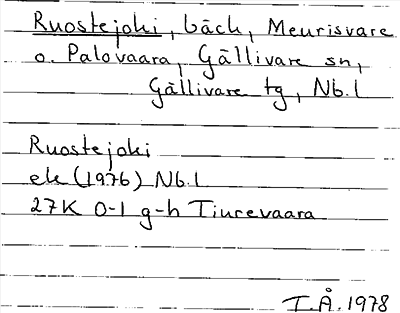 Ruostejoki, bäck, Meurisvare
o. Palovaara, Gällivare sn,
Gällivare tg, Nb.l
Ruostejoki
ek (1976) Nb.l
27K 0-1 g-h Tiurevaara
I.Å. 1978